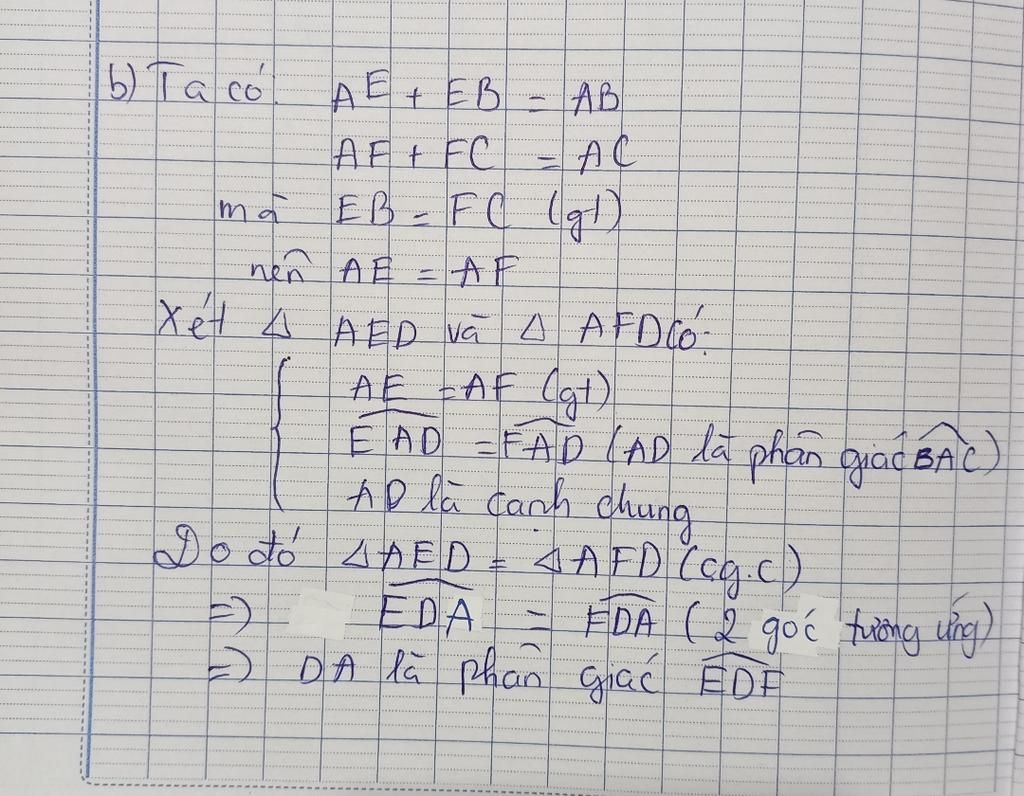 b) Ta có: AE + EB = AB
AF + FC = AC
mà EB = FC (gt)
nên AE = AF
Xét Δ AED và Δ AFD có:
AE = AF (gt)
EAD = FAD (AD là phân giác BAC)
AD là cạnh chung
Do đó ΔAED = ΔAFD (cg.c)
=> EDA = FDA ( 2 góc tương ứng)
=> DA là phân giác EDF